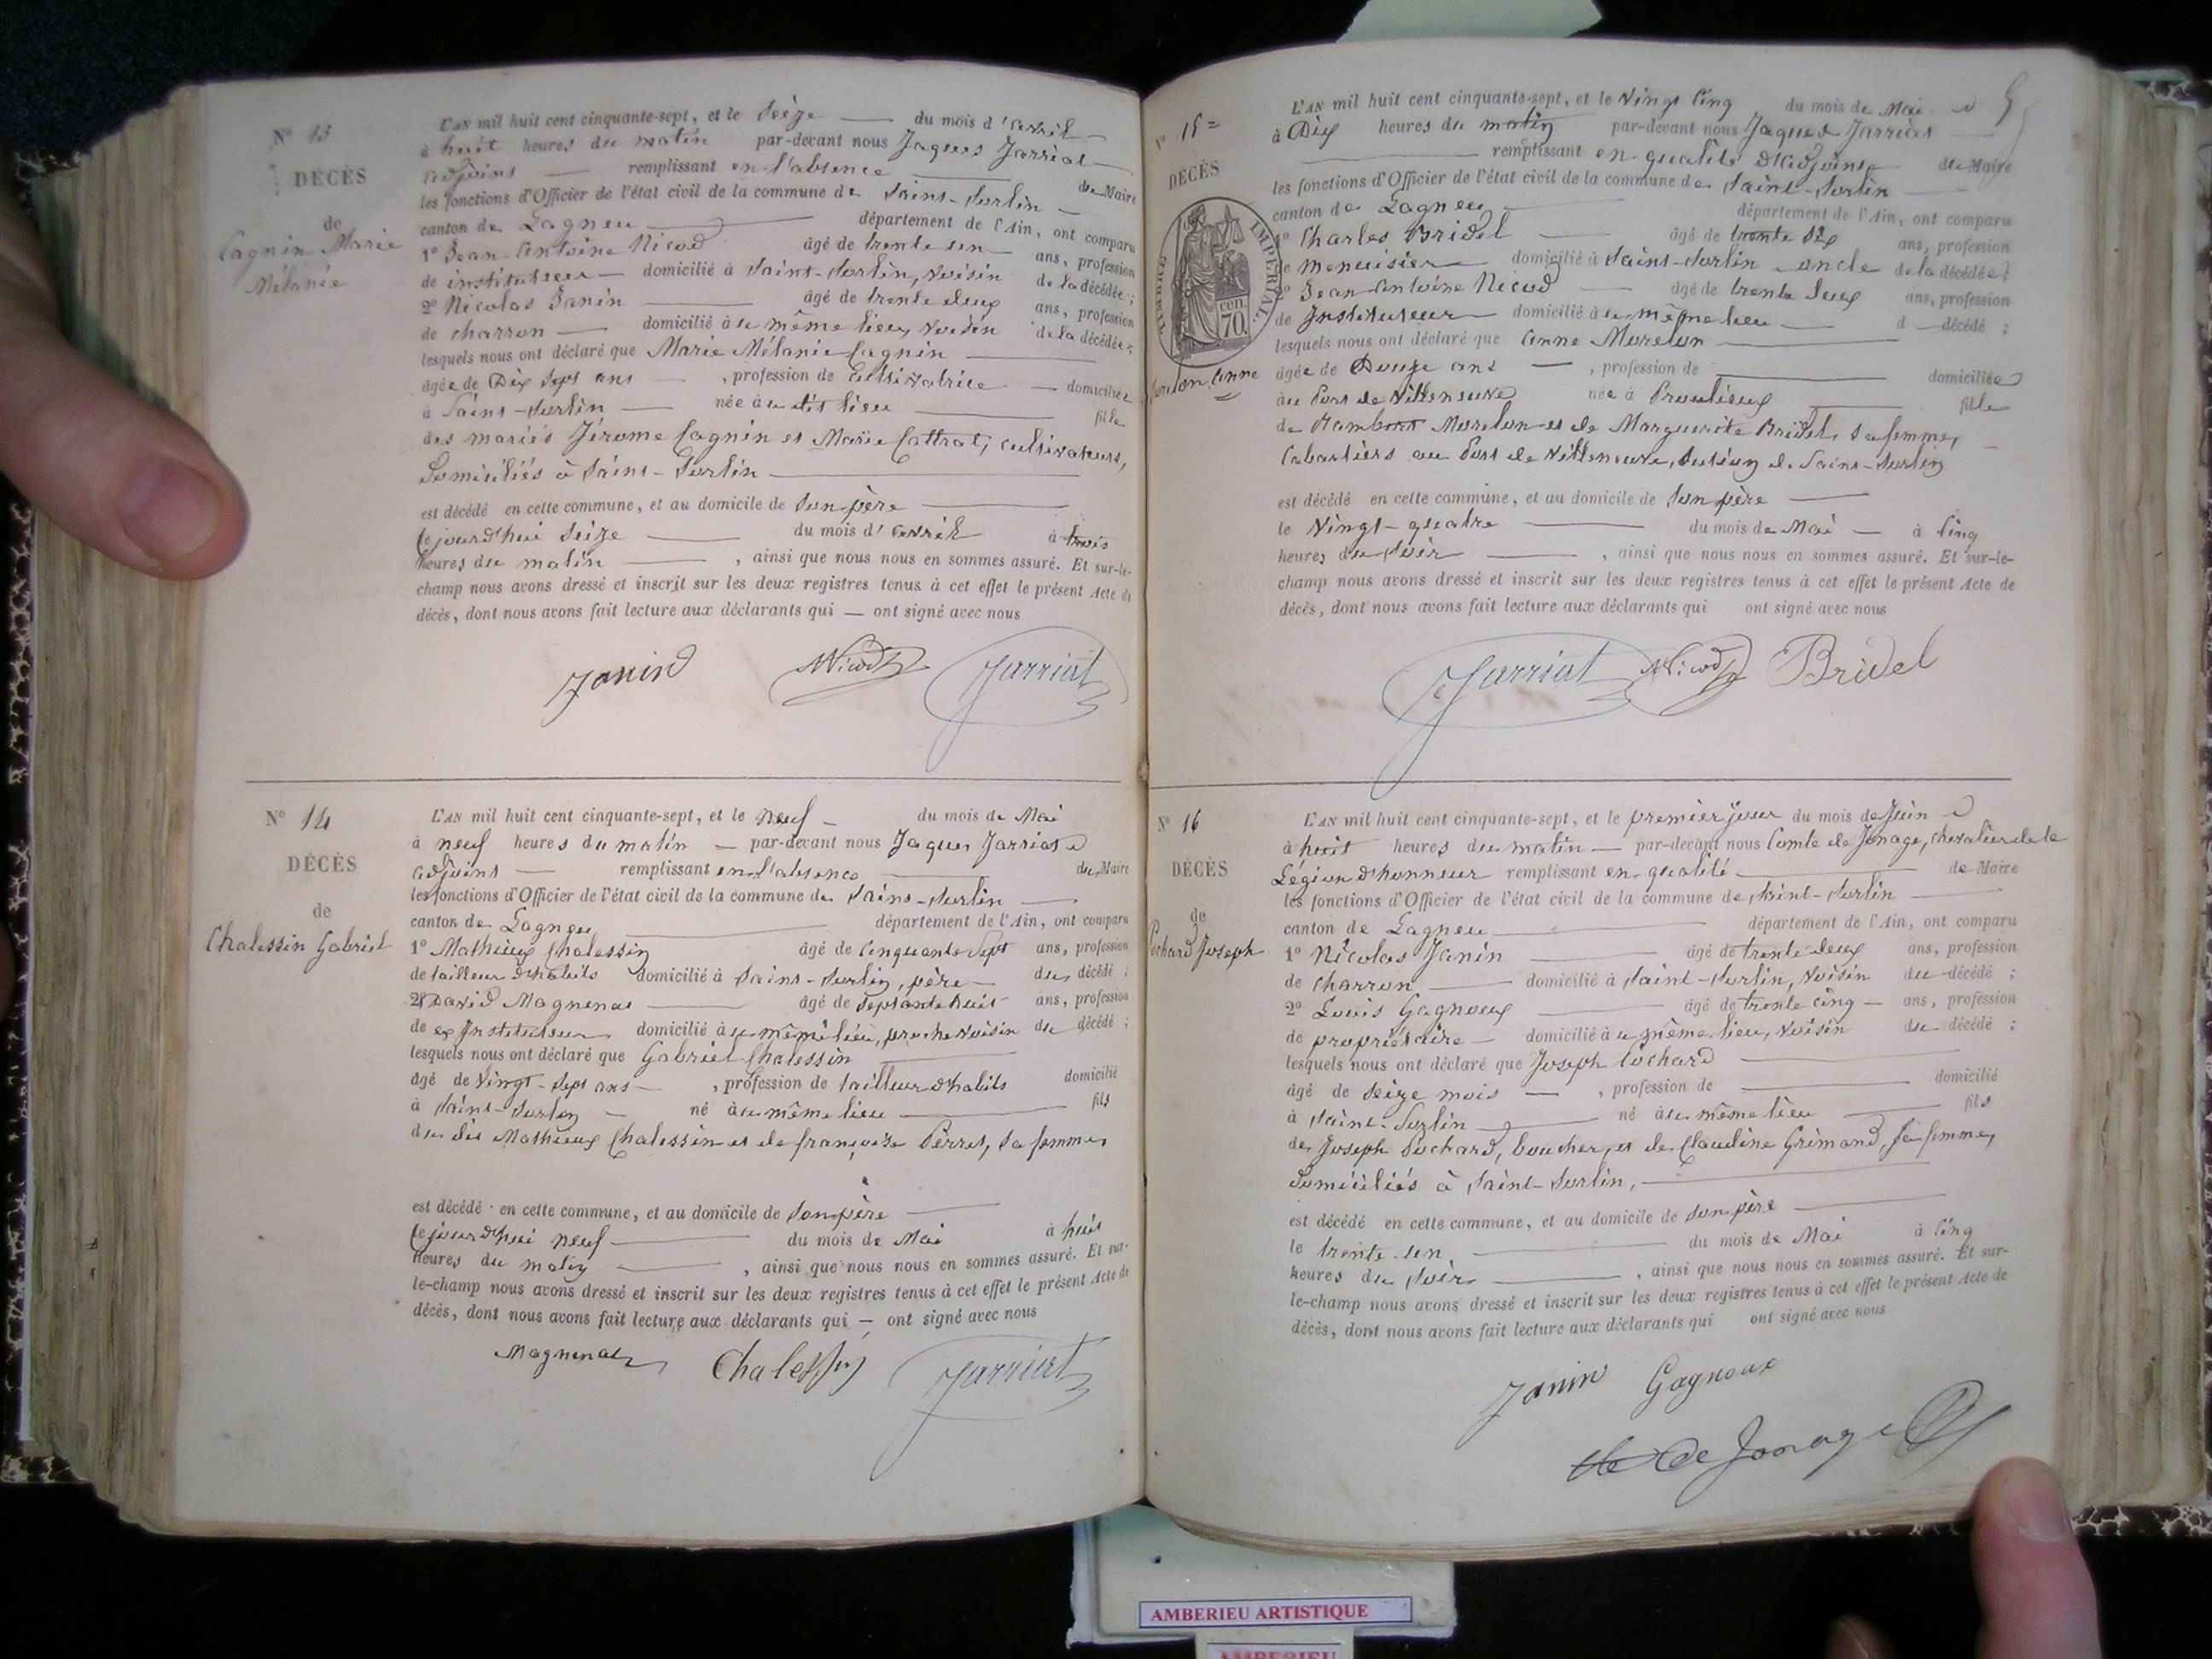 N° 13
DÉCÈS
de
Cagnin Marie
Mélanie
L'AN mil huit cent cinquante-sept, et le Seize du mois d'avril
à huit heures du matin par-devant nous Jaques Jarriat
adjoint remplissant en l'absence du Maire
les fonctions d'Officier de l'état civil de la commune de Saint-Sorlin
canton de Lagneu département de l'Ain, ont comparu
1° Jean Antoine Nicod âgé de trente un ans, profession
de instituteur domicilié à Saint-Sorlin, voisin de la décédée ;
2° Nicolas Janin âgé de trente deux ans, profession
de charron domicilié au même lieu, voisin de la décédée ;
lesquels nous ont déclaré que Marie Mélanie Cagnin
âgée de Dix Sept ans , profession de Cultivatrice domiciliée
à Saint-Sorlin née au dit lieu fille
des mariés Jérome Cagnin et Marie Cattrat, cultivateurs,
Domiciliés à Saint-Sorlin
est décédé en cette commune, et au domicile de Son père
Cejourd'hui Seize du mois d'avril à trois
heures du matin , ainsi que nous nous en sommes assuré. Et sur-le-
champ nous avons dressé et inscrit sur les deux registres tenus à cet effet le présent Acte de
décès, dont nous avons fait lecture aux déclarants qui — ont signé avec nous
Janin Nicod Jarriat
N° 14
DÉCÈS
de
Chalessin Gabriel
L'AN mil huit cent cinquante-sept, et le neuf du mois de Mai
à neuf heures du matin par-devant nous Jaques Jarriat
adjoint remplissant en l'absence du Maire
les fonctions d'Officier de l'état civil de la commune de Saint-Sorlin
canton de Lagneu département de l'Ain, ont comparu
1° Mathieux Chalessin âgé de Cinquante Sept ans, profession
de tailleur d'habits domicilié à Saint-Sorlin, père du décédé ;
2° David Magnenat âgé de Septante huit ans, profession
de ex Instituteur domicilié au même lieu, proche voisin du décédé ;
lesquels nous ont déclaré que Gabriel Chalessin
âgé de Vingt-Sept ans , profession de tailleur d'habits domicilié
à Saint-Sorlin né au même lieu fils
du dit Mathieux Chalessin et de françoise Perret, Sa femme
est décédé en cette commune, et au domicile de Son père
Cejourd'hui neuf du mois de Mai à huit
heures du matin , ainsi que nous nous en sommes assuré. Et sur-
le-champ nous avons dressé et inscrit sur les deux registres tenus à cet effet le présent Acte de
décès, dont nous avons fait lecture aux déclarants qui — ont signé avec nous
Magnenat Chalessin Jarriat
5
N° 15
DÉCÈS
TIMBRE IMPÉRIAL
cen.
70
Anne
L'AN mil huit cent cinquante-sept, et le Vingt Cinq du mois de Mai
à Dix heures du matin par-devant nous Jaques Jarriat
remplissant en qualité d'adjoint du Maire
les fonctions d'Officier de l'état civil de la commune de Saint-Sorlin
canton de Lagneu département de l'Ain, ont comparu
1° Charles Bridel âgé de trente Six ans, profession
de menuisier domicilié à Saint-Sorlin oncle de la décédée ;
2° Jean Antoine Nicod âgé de trente Deux ans, profession
de Instituteur domicilié au même lieu d décédé ;
lesquels nous ont déclaré que Anne Morelon
âgée de Douze ans , profession de domiciliée
au Port de Villeneuve née à Proulieux fille
de Rambert Morelon et de Marguerite Bridel, Sa femme,
Cabartiers au Port de Villeneuve, Section de Saint-Sorlin
est décédé en cette commune, et au domicile de Son père
le Vingt-quatre du mois de Mai à Cinq
heures du Soir , ainsi que nous nous en sommes assuré. Et sur-le-
champ nous avons dressé et inscrit sur les deux registres tenus à cet effet le présent Acte de
décès, dont nous avons fait lecture aux déclarants qui ont signé avec nous
Jarriat Nicod Bridel
N° 16
DÉCÈS
de
Cochard Joseph
L'AN mil huit cent cinquante-sept, et le premier jour du mois de Juin
à huit heures du matin par-devant nous Comte de Jonage, chevalier de la
Légion d'honneur remplissant en qualité de Maire
les fonctions d'Officier de l'état civil de la commune de Saint-Sorlin
canton de Lagneu département de l'Ain, ont comparu
1° Nicolas Janin âgé de trente deux ans, profession
de charron domicilié à Saint-Sorlin, voisin du décédé ;
2° Louis Gagnoux âgé de trente cinq ans, profession
de propriétaire domicilié au même lieu, voisin du décédé ;
lesquels nous ont déclaré que Joseph Cochard
âgé de Seize mois , profession de domicilié
à Saint-Sorlin né au même lieu fils
de Joseph Cochard, boucher, et de Claudine Grimand, Sa femme,
Domiciliés à Saint-Sorlin,
est décédé en cette commune, et au domicile de Son père
le trente-un du mois de Mai à Cinq
heures du Soir , ainsi que nous nous en sommes assuré. Et sur-
le-champ nous avons dressé et inscrit sur les deux registres tenus à cet effet le présent Acte de
décès, dont nous avons fait lecture aux déclarants qui ont signé avec nous
Janin Gagnoux
de Jonage
AMBERIEU ARTISTIQUE
AMBERIEU